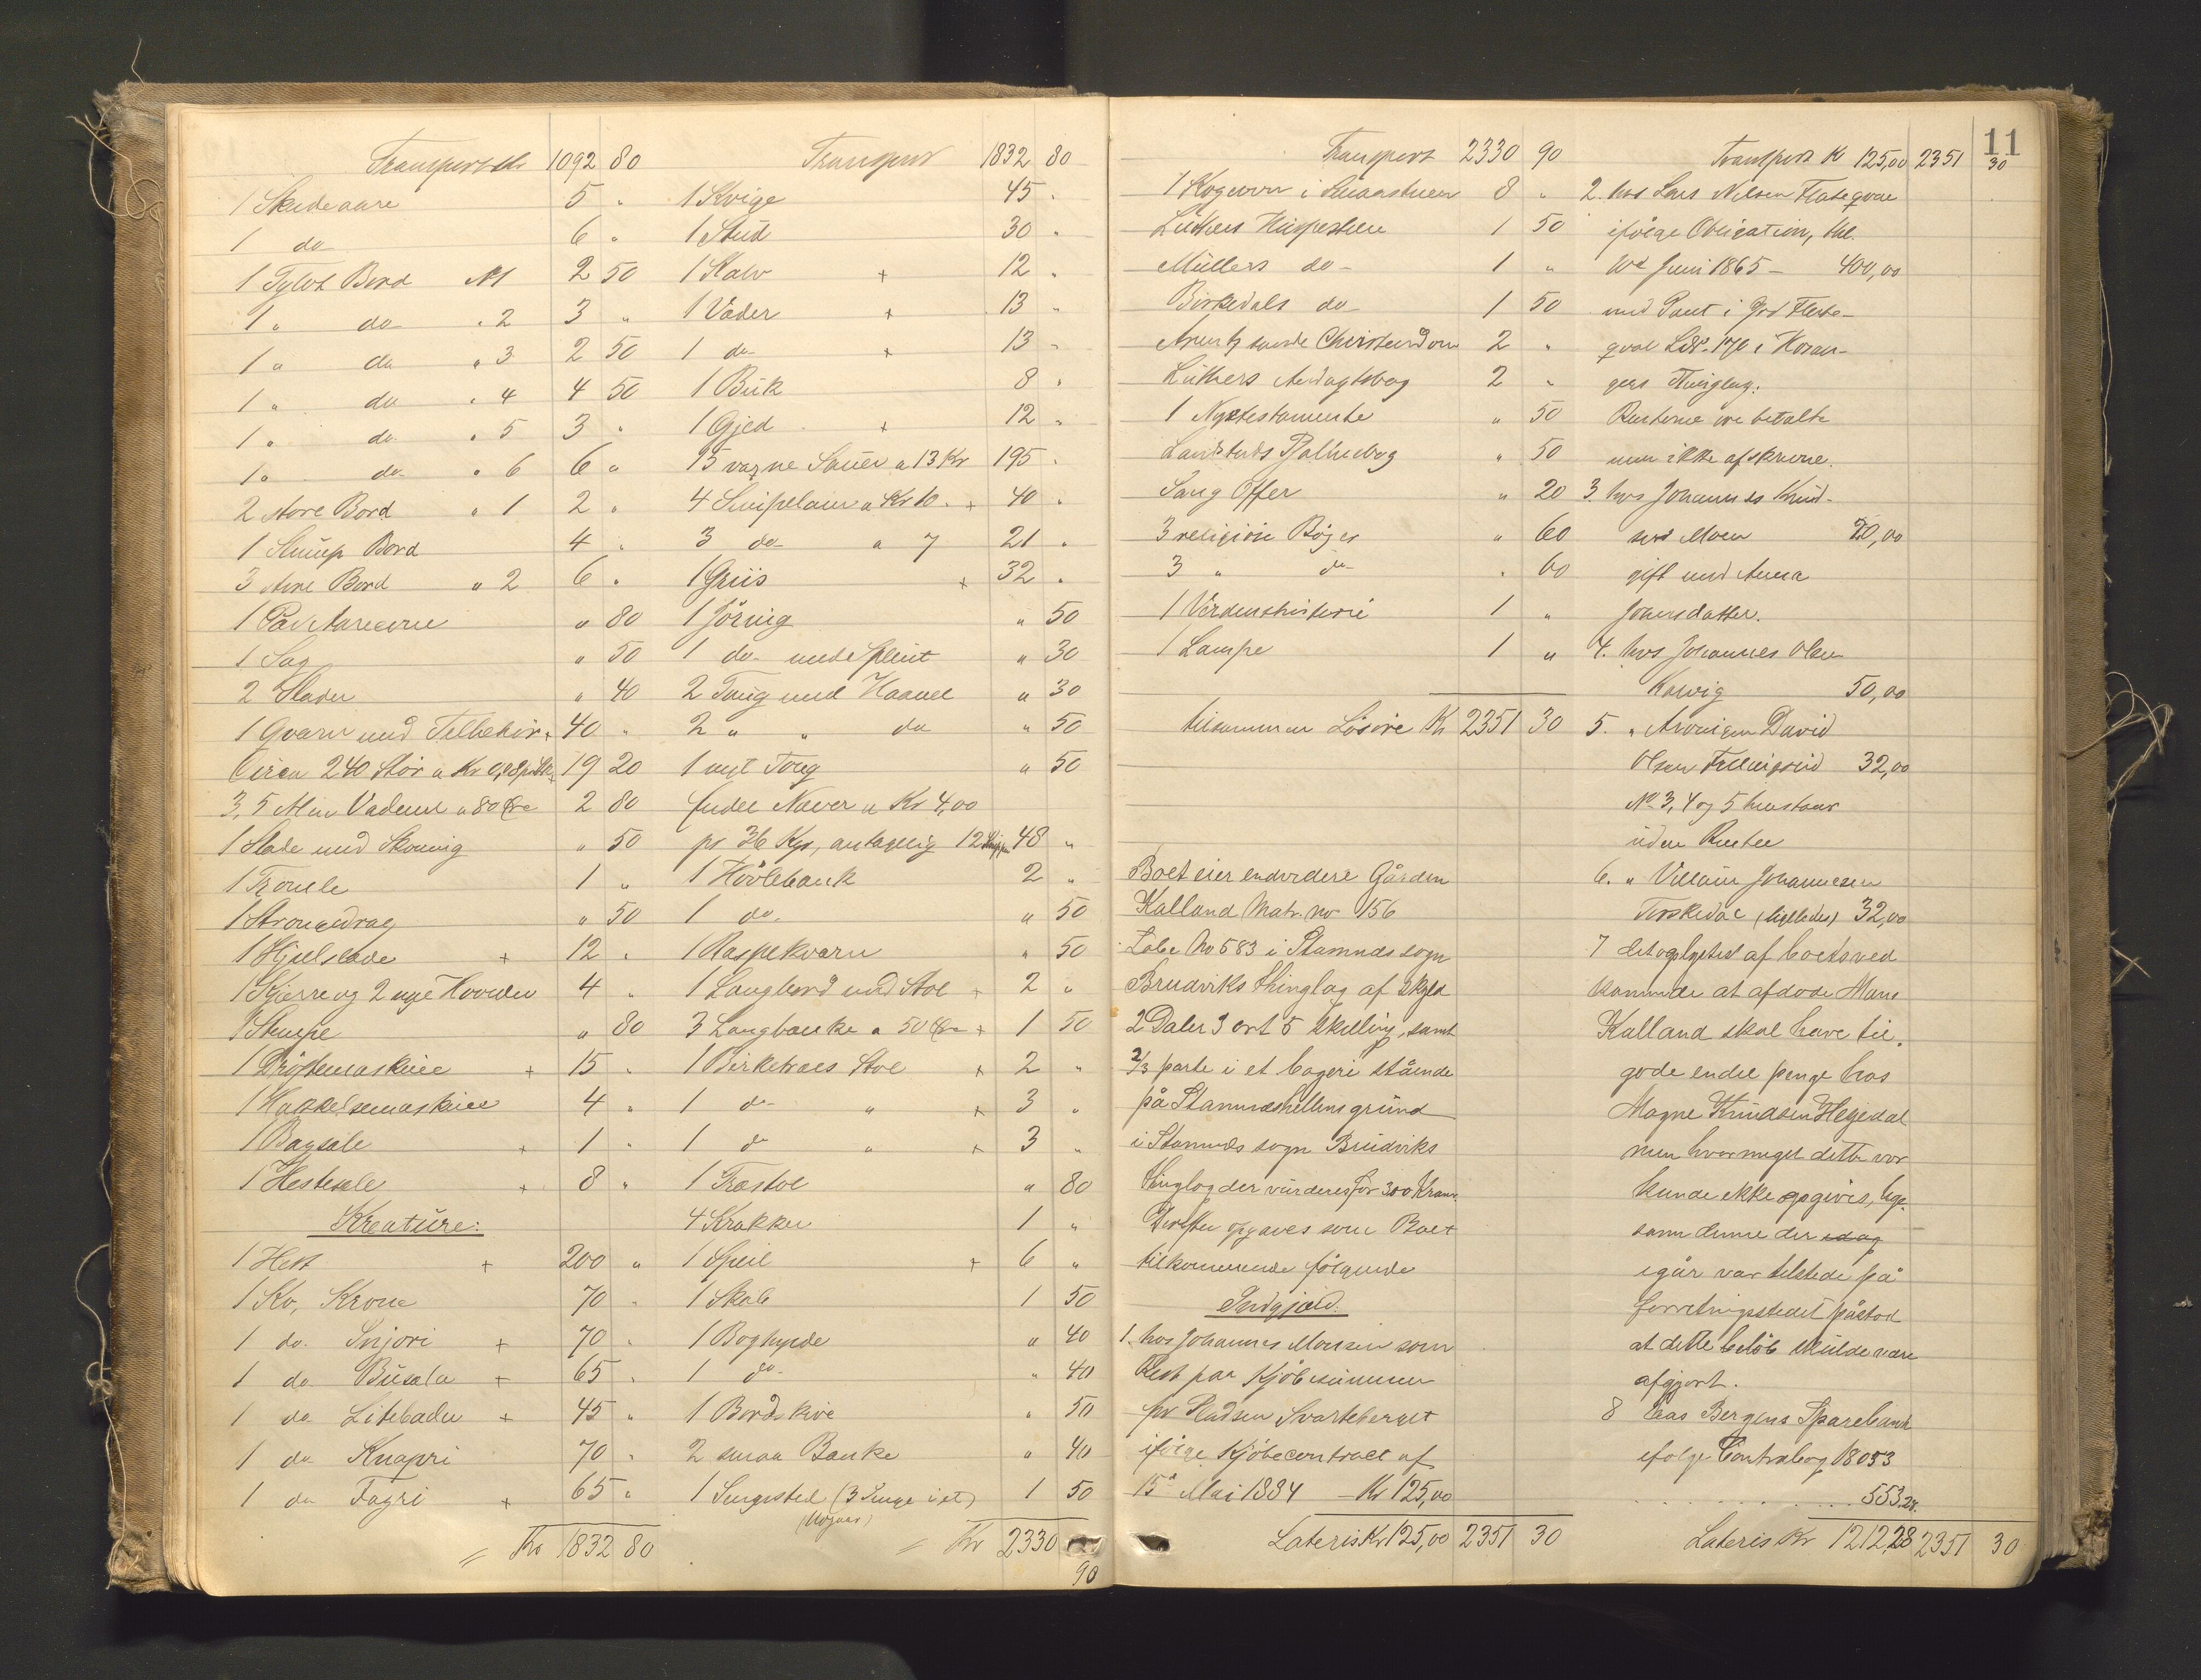 Transport Kr 1092 80
1 Skideaare 5 "
1 do 6 "
1 Tylvt Bord № 1 2 50
1 " do " 2 3 "
1 " do " 3 2 50
1 " do " 4 4 50
1 " do " 5 3 "
1 " do " 6 6 "
2 store Bord " 1 2 "
1 Stump Bord 4 "
3 store Bord " 2 6 "
1 " 80
1 Sag " 50
2 Slader " 40
1 Qvarn med Tilbehør + 40 "
Circa 240 Stör a Kr 0,08 pr Stk 19 20
3,5 Mtr Vadmel a 80 Øre 2 80
1 Slade med Skoning " 50
1 Tromle 1 "
1 " 50
1 Hjulslæde + 12 "
1 Kjærre og 2 nye Hovder 4 "
1 Stempe " 80
1 Drøftemaskine + 15 "
1 Hakkelsemaskine 4 "
1 Bagsale + 1 "
1 Hestesele + 8 "
Kreature:
1 Hest + 200 "
1 Ko, Krone 70 "
1 do. Snjori + 70 "
1 do Busala + 65 "
1 do Litebader + 45 "
1 do Knapri 70 "
1 do Fagri + 65 "
= Kr 1832 80
Transport 1832 80
1 Kvige 45 "
1 Stud 30 "
1 Kalv + 12 "
1 Væder + 13 "
1 do + 13 "
1 Buk 8 "
1 Gjed + 12 "
15 vaxne Sauer a 13 Kr 195 "
4 a Kr 10. + 40 "
3 do a 7 21 "
1 Griis + 32 "
1 " 50
1 do med Splint " 30
2 Toug med " 30
2 " " do " 50
1 nyt Toug " 50
Endel Næver a Kr 4,00
pr 36 Kgr, antagelig 12 48 "
1 Høvlebænk 2 "
1 do. " 50
1 Raspekværn " 50
1 Langbord med Stol + 2 "
3 Langbænke a 50 Øre + 1 50
1 Birketræes Stol + 2 "
1 do " + 3 "
1 do " + 3 "
1 Træstol " 80
4 Krakker 1 "
1 Speil + 6 "
1 Skab 1 50
1 Boghylde " 40
1 do " 40
1 Bordskive " 50
2 smaa Bænke " 40
1 Sengested (3 Senge i et) 1 50
= Kr 2330 90
Transport 2330 90
1 Kogeovn i Smaastuen 8 "
Luthers Huspostille 1 50
Müllers do 1 "
Birkedals do 1 50
Arentz sande Christendom 2 "
Luthers Andagtsbog 2 "
1 Nytestamente " 50
Landstads Psalmebog " 50
Sang Offer " 20
3 religiøse Bøger " 60
3 " do " 60
1 Verdenshistorie 1 "
1 Lampe 1 "
tilsammen Løsøre Kr 2351 30
Boet eier endvidere Gården
Kalland Matr. no 156
Løbe No 583 i Stamnæs sogn
Bruviks thinglag af Skyld
2 Daler 3 ort 5 skilling, samt
2/3 parte i et bageri stående
på Stamnæshellens grund
i Stamnæs sogn Bruviks
thinglag der vurderes for 300 Kroner
Derefter opgaves som Boet
tilkommende følgende
Indgjæld.
1. hos Johannes Monsen som
Rest paa Kjøbesummen
for Pladsen Svarteberget
ifølge Kjøbecontract af
15d Mai 1884 – Kr 125,00
Lateris Kr 125,00 2351 30
11
Transport Kr 125,00 2351 30
2. hos Lars Nilsen Flatequal
ifølge Obligation, thl.
10d Juni 1865 – 400,00
med Pant i Grd Flate-
qval LNr. 170 i Hosan-
gers Thinglag.
Renterne ere betalte
men ikke afskrevne.
3. hos Johannes Knud-
sen Moen 20,00
gift med Anna
Johnsdatter.
4. hos Johannes Olsen
Kalvig 50,00
5. " David
Olsen 32,00
№ 3, 4 og 5 henstaar
uden Renter
6. " Villum Johannesen
Torskedal (ligeledes) 32,00
7 detogelysted af boets ved
kommende at afdøde Mons
Kalland skal have til
gode endel penge hos
Magne Knudsen Hegedal
men hvor meget dette var
kunde ikke opgives, lige
som denne der idag
igår var tilstede på
forretningsstedet påstod
at dette beløb skulde være
afgjort.
8 hos Bergens Sparebank
ifølge Contrabog 18053
553,28.
Lateris Kr 1212,28 2351 30